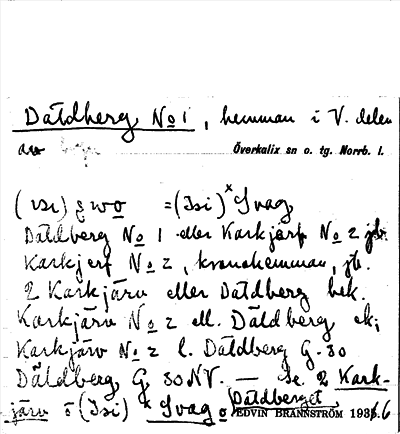 Daldberg No 1, hemman i V. delen
av Överkalix sn o. tg. Norrb. l.
= (Isi) Svag
Daldberg No 1 eller Karkjerf No 2 jb.
Karkjerf No 2, kronohemman, jb.
2 Karkjärv eller Daldberg bek.
Karkjärv No 2 ell. Daldberg ek;
Karkjärv No 2 l. Daldberg G. 30
Daldberg G. 30 NV. — Se. 2 Kark-
järv o (Isi) Svag o Daldberget
EDVIN BRÄNNSTRÖM 1936